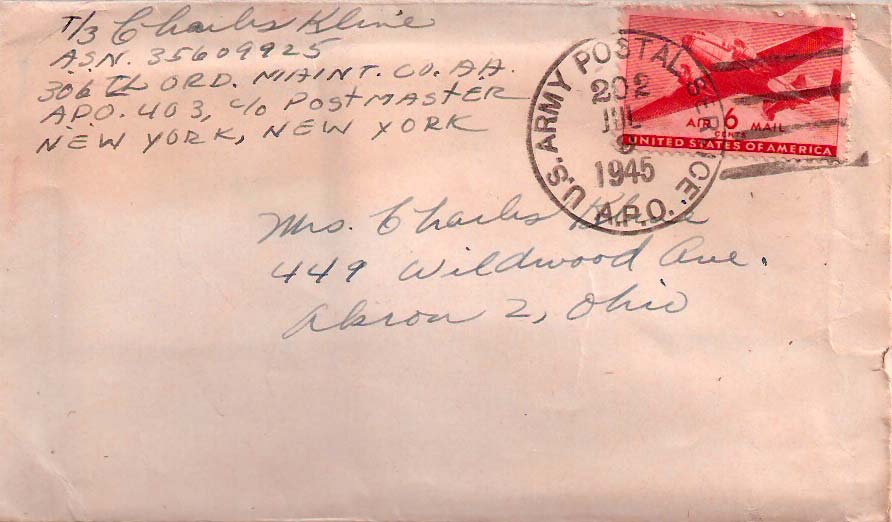 T/3 Charles Kline
ASN. 35609925
306th ORD. MAINT. CO. AA.
APO. 403, c/o PostMASTER
NEW YORK, NEW YORK
U.S. ARMY POSTAL SERVICE
202
JUL
1945
A.P.O.
AIR 6 MAIL
CENTS
UNITED STATES OF AMERICA
Mrs. Charles Kline
449 Wildwood Ave.
Akron 2, Ohio